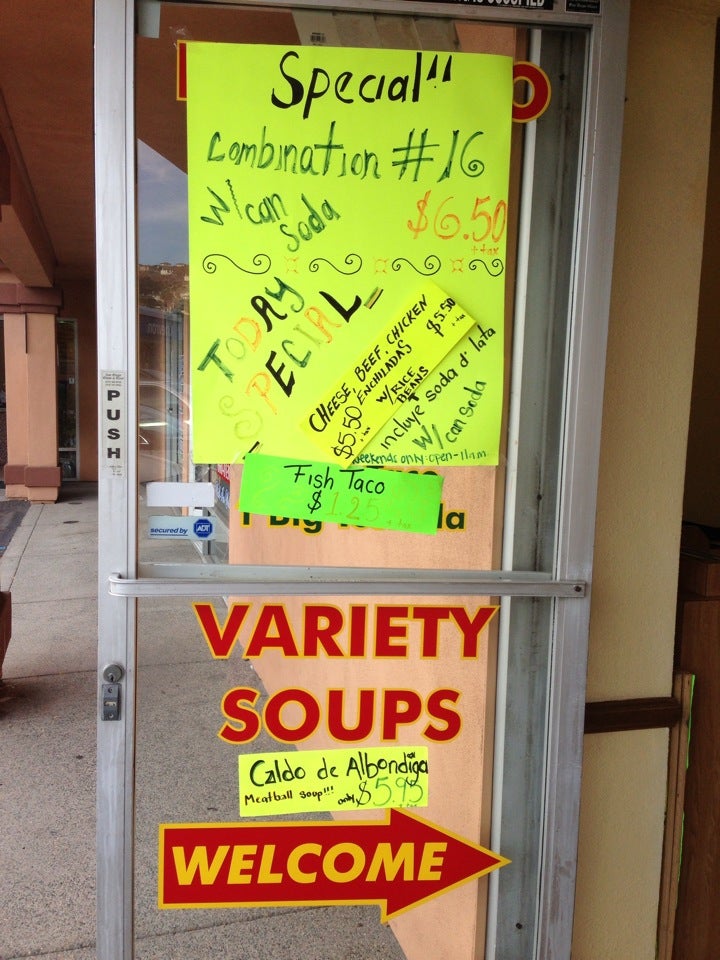 Special"
Combination #16
w/can
Soda
$6.50
+tax
TODAY
SPECIAL
CHEESE, BEEF, CHICKEN
ENCHILADAS
$5.50
+tax
w/RICE
BEANS
$5.50
+tax
incluye soda d' lata
w/can soda
weekends only: open-11am
Fish Taco
$1.25
+tax
PUSH
secured by ADT
VARIETY
SOUPS
Caldo de Albondiga
Meatball soup!!!
only $5.95
+tax
WELCOME